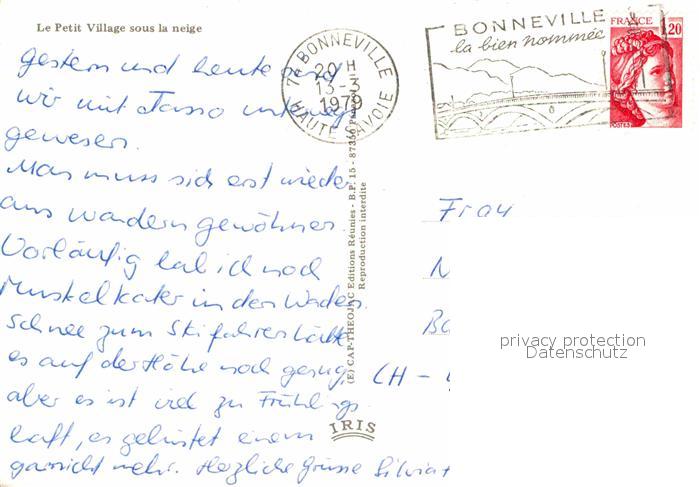 Le Petit Village sous la neige
gestern und heute sind
wir mit Tasso unterwegs
gewesen.
Man muss sich erst wieder
ans wandern gewöhnen.
Vorläufig hab ich noch
Muskelkater in den Waden.
Schnee zum Skifahren hätte
es auf der Höhe noch genug,
aber es ist viel zu Frühlings
haft, es gelüstet einem
garnicht mehr. Herzliche Grüsse Silvia +
74 BONNEVILLE
20 H
13 -3
1979
HAUTE SAVOIE
BONNEVILLE
la bien nommée
FRANCE
1,20
POSTES
(E) CAP-THEOJAC Editions Réunies - B.P. 15 - 87350
Reproduction interdite
IRIS
Frau
N
Ba
CH -
privacy protection
Datenschutz